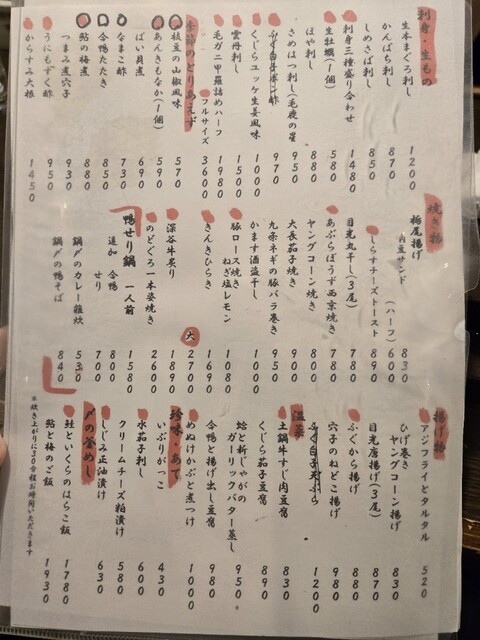 刺身・生もの
生本まぐろ刺し 1200
かんぱち刺し 870
しめさば刺し 850
刺身三種盛り合わせ 1480
生牡蠣(1個) 580
ほや刺し 880
さめはつ刺し(毛鹿の星) 950
ふぐ白子ポン酢 970
くじらユッケ生姜風味 1000
雲丹刺し 1500
毛ガニ甲羅詰めハーフ 1980
フルサイズ 3600
季節のとりあえず
枝豆の山椒風味 570
あんきもなか(1個) 590
ばい貝煮 690
なまこ酢 730
合鴨たたき 850
鮎の梅煮 880
つまみ煮穴子 930
うにもずく酢 950
からすみ大根 1450
焼き物
栃尾揚げ
納豆サンド 830
(ハーフ) 600
しらすチーズトースト 890
目光丸干し(3尾) 780
あぶらぼうず西京焼き 780
ヤングコーン焼き 800
大長茄子焼き 900
九条ネギの豚バラ巻き 950
かます酒盗干し 1000
豚ロース焼き
ねぎ塩レモン 1080
きんきひらき 1690
大 2700
深谷牛炙り 1890
のどぐろ一本姿焼き 2600
鴨せり鍋 一人前 1580
追加 合鴨 800
せり 700
鍋〆のカレー雑炊 530
鍋〆の鴨そば 840
揚げ物
アジフライとタルタル 520
ひげ巻き
ヤングコーン揚げ 830
目光唐揚げ(3尾) 870
ふぐから揚げ 880
穴子のねどこ揚げ 980
ふぐ白子天ぷら 1200
温菜
土鍋牛すじ肉豆腐 830
くじら茄子豆腐 890
蛤と新じゃがの
ガーリックバター蒸し 950
合鴨と揚げ出し豆腐 980
めぬけかぶと煮つけ 1000
珍味・あて
いぶりがっこ 430
水茄子刺し 600
クリームチーズ粕漬け 580
しじみ正油漬け 630
〆の釜めし
鮭といくらのはらこ飯 1780
鮎と梅のご飯 1930
※炊き上がりに30分程お時間いただきます